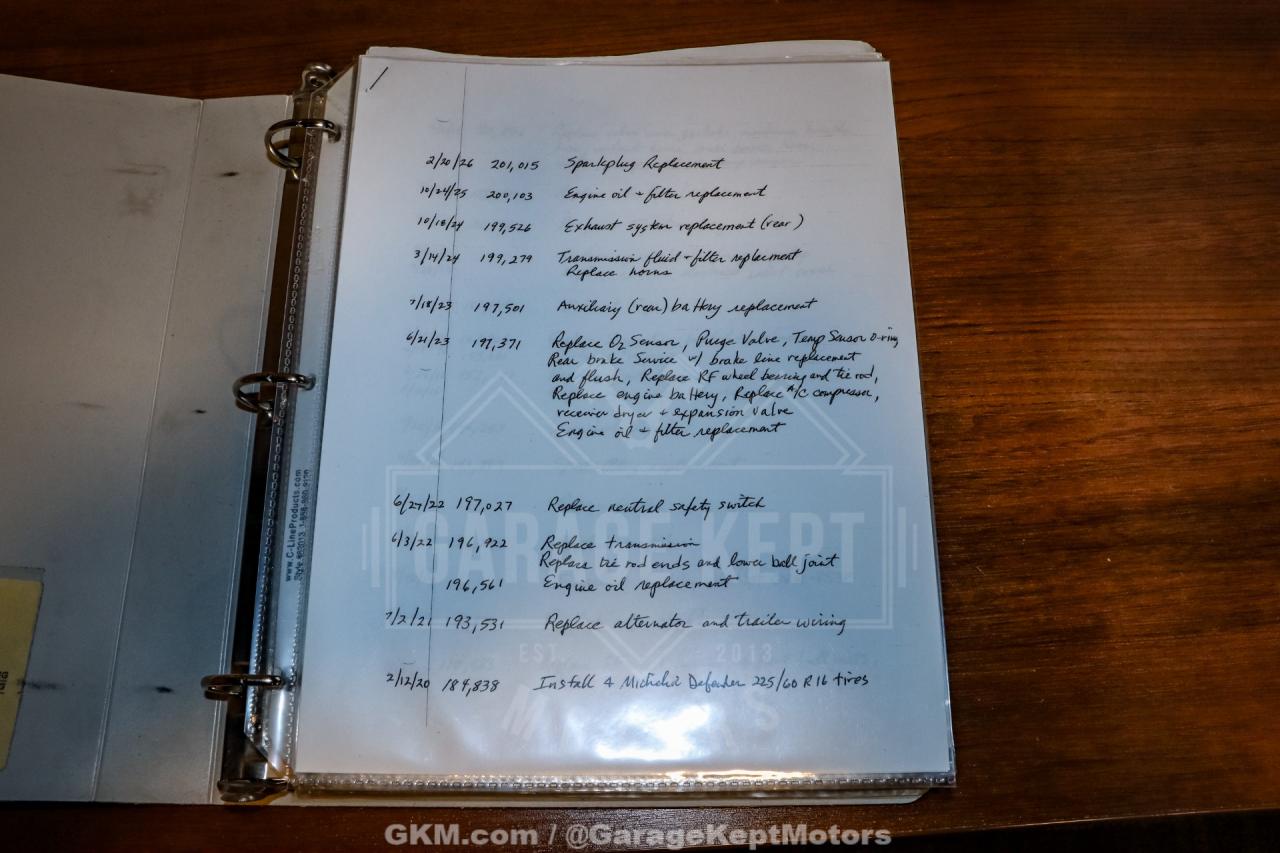 2/20/26 201,015 Sparkplug Replacement
10/24/25 200,103 Engine oil + filter replacement
10/18/24 199,526 Exhaust system replacement (rear)
3/14/24 199,279 Transmission fluid + filter replacment
Replace horns
7/18/23 197,501 Auxiliary (rear) battery replacement
6/21/23 197,371 Replace O2 Sensor, Purge Valve, Temp Sensor O-ring
Rear brake Service w/ brake line replacement
and flush, Replace RF wheel bearing and tie rod,
Replace engine battery, Replace A/C compressor,
receiver dryer + expansion valve
Engine oil + filter replacement
6/27/22 197,027 Replace neutral safety switch
6/3/22 196,922 Replace transmission
Replace tie rod ends and lower ball joint
196,561 Engine oil replacement
7/2/21 193,531 Replace alternator and trailer wiring
2/12/20 184,838 Install 4 Michelin Defender 225/60 R16 tires
www.C-LineProducts.com
GARAGE KEPT
EST. 2013
MOTORS
GKM.com / @GarageKeptMotors